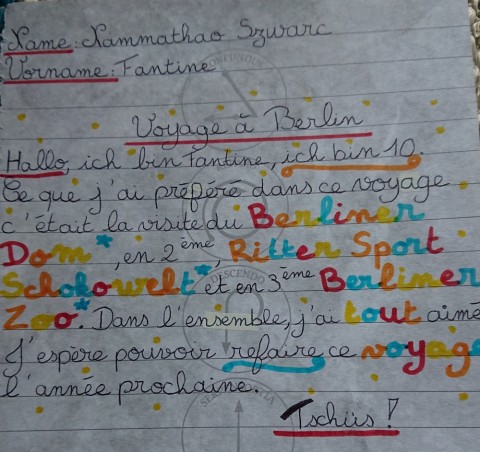 Name: Nammathao Szwarc
Vorname: Fantine
Voyage à Berlin
Hallo, ich bin Fantine, ich bin 10.
Ce que j'ai préféré dans ce voyage
c'était la visite du Berliner
Dom*, en 2ème, Ritter Sport
Schokowelt* et en 3ème Berliner
Zoo*. Dans l'ensemble, j'ai tout aimé
J'espère pouvoir refaire ce voyage
l'année prochaine.
Tschüs!
DESCENDO